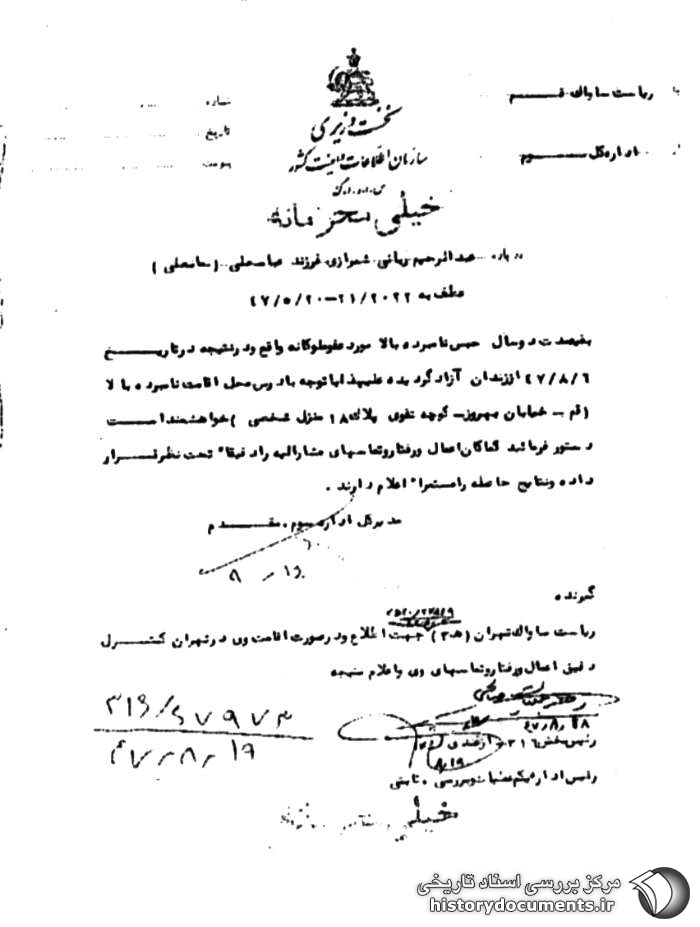 به ریاست ساواک قم
شماره
از اداره کل سوم
تاریخ
پیوست
نخست وزیری
سازمان اطلاعات و امنیت کشور
س.ا.و.ا.ک
خیلی محرمانه
درباره عبدالرحیم ربانی شیرازی فرزند عباسعلی
عطف به ۲۱/۲۰۲۲-۴۷/۵/۲۰
بقیه مدت دو سال حبس نامبرده بالا مورد عفو ملوکانه واقع و در نتیجه در تاریخ
۴۷/۸/۶ از زندان آزاد گردیده علیهذا با توجه به آدرس محل اقامت نامبرده بالا
(قم - خیابان بهروز - کوچه تقوی پلاک ۱۸ منزل شخصی) خواهشمند است
دستور فرمائید کماکان اعمال و رفتار و تماسهای مشارالیه را دقیقاً تحت نظر قرار
داده و نتایج حاصله را مستمراً اعلام دارند.
مدیرکل اداره سوم. مقدم
۸-۱۹
گیرنده
ریاست ساواک تهران (۳ﻫ) جهت اطلاع و در صورت اقامت وی در تهران کنترل
دقیق اعمال و رفتار و تماسهای وی و اعلام نتیجه
۴۷/۸/۱۸
رئیس بخش ۳۱۶
۸/۱۹
رئیس اداره یکم عملیات و بررسی. ثابتی
۳۱۶/۴۷۹۷۳
۴۷-۸-۱۹
خیلی محرمانه
مرکز بررسی اسناد تاریخی
historydocuments.ir